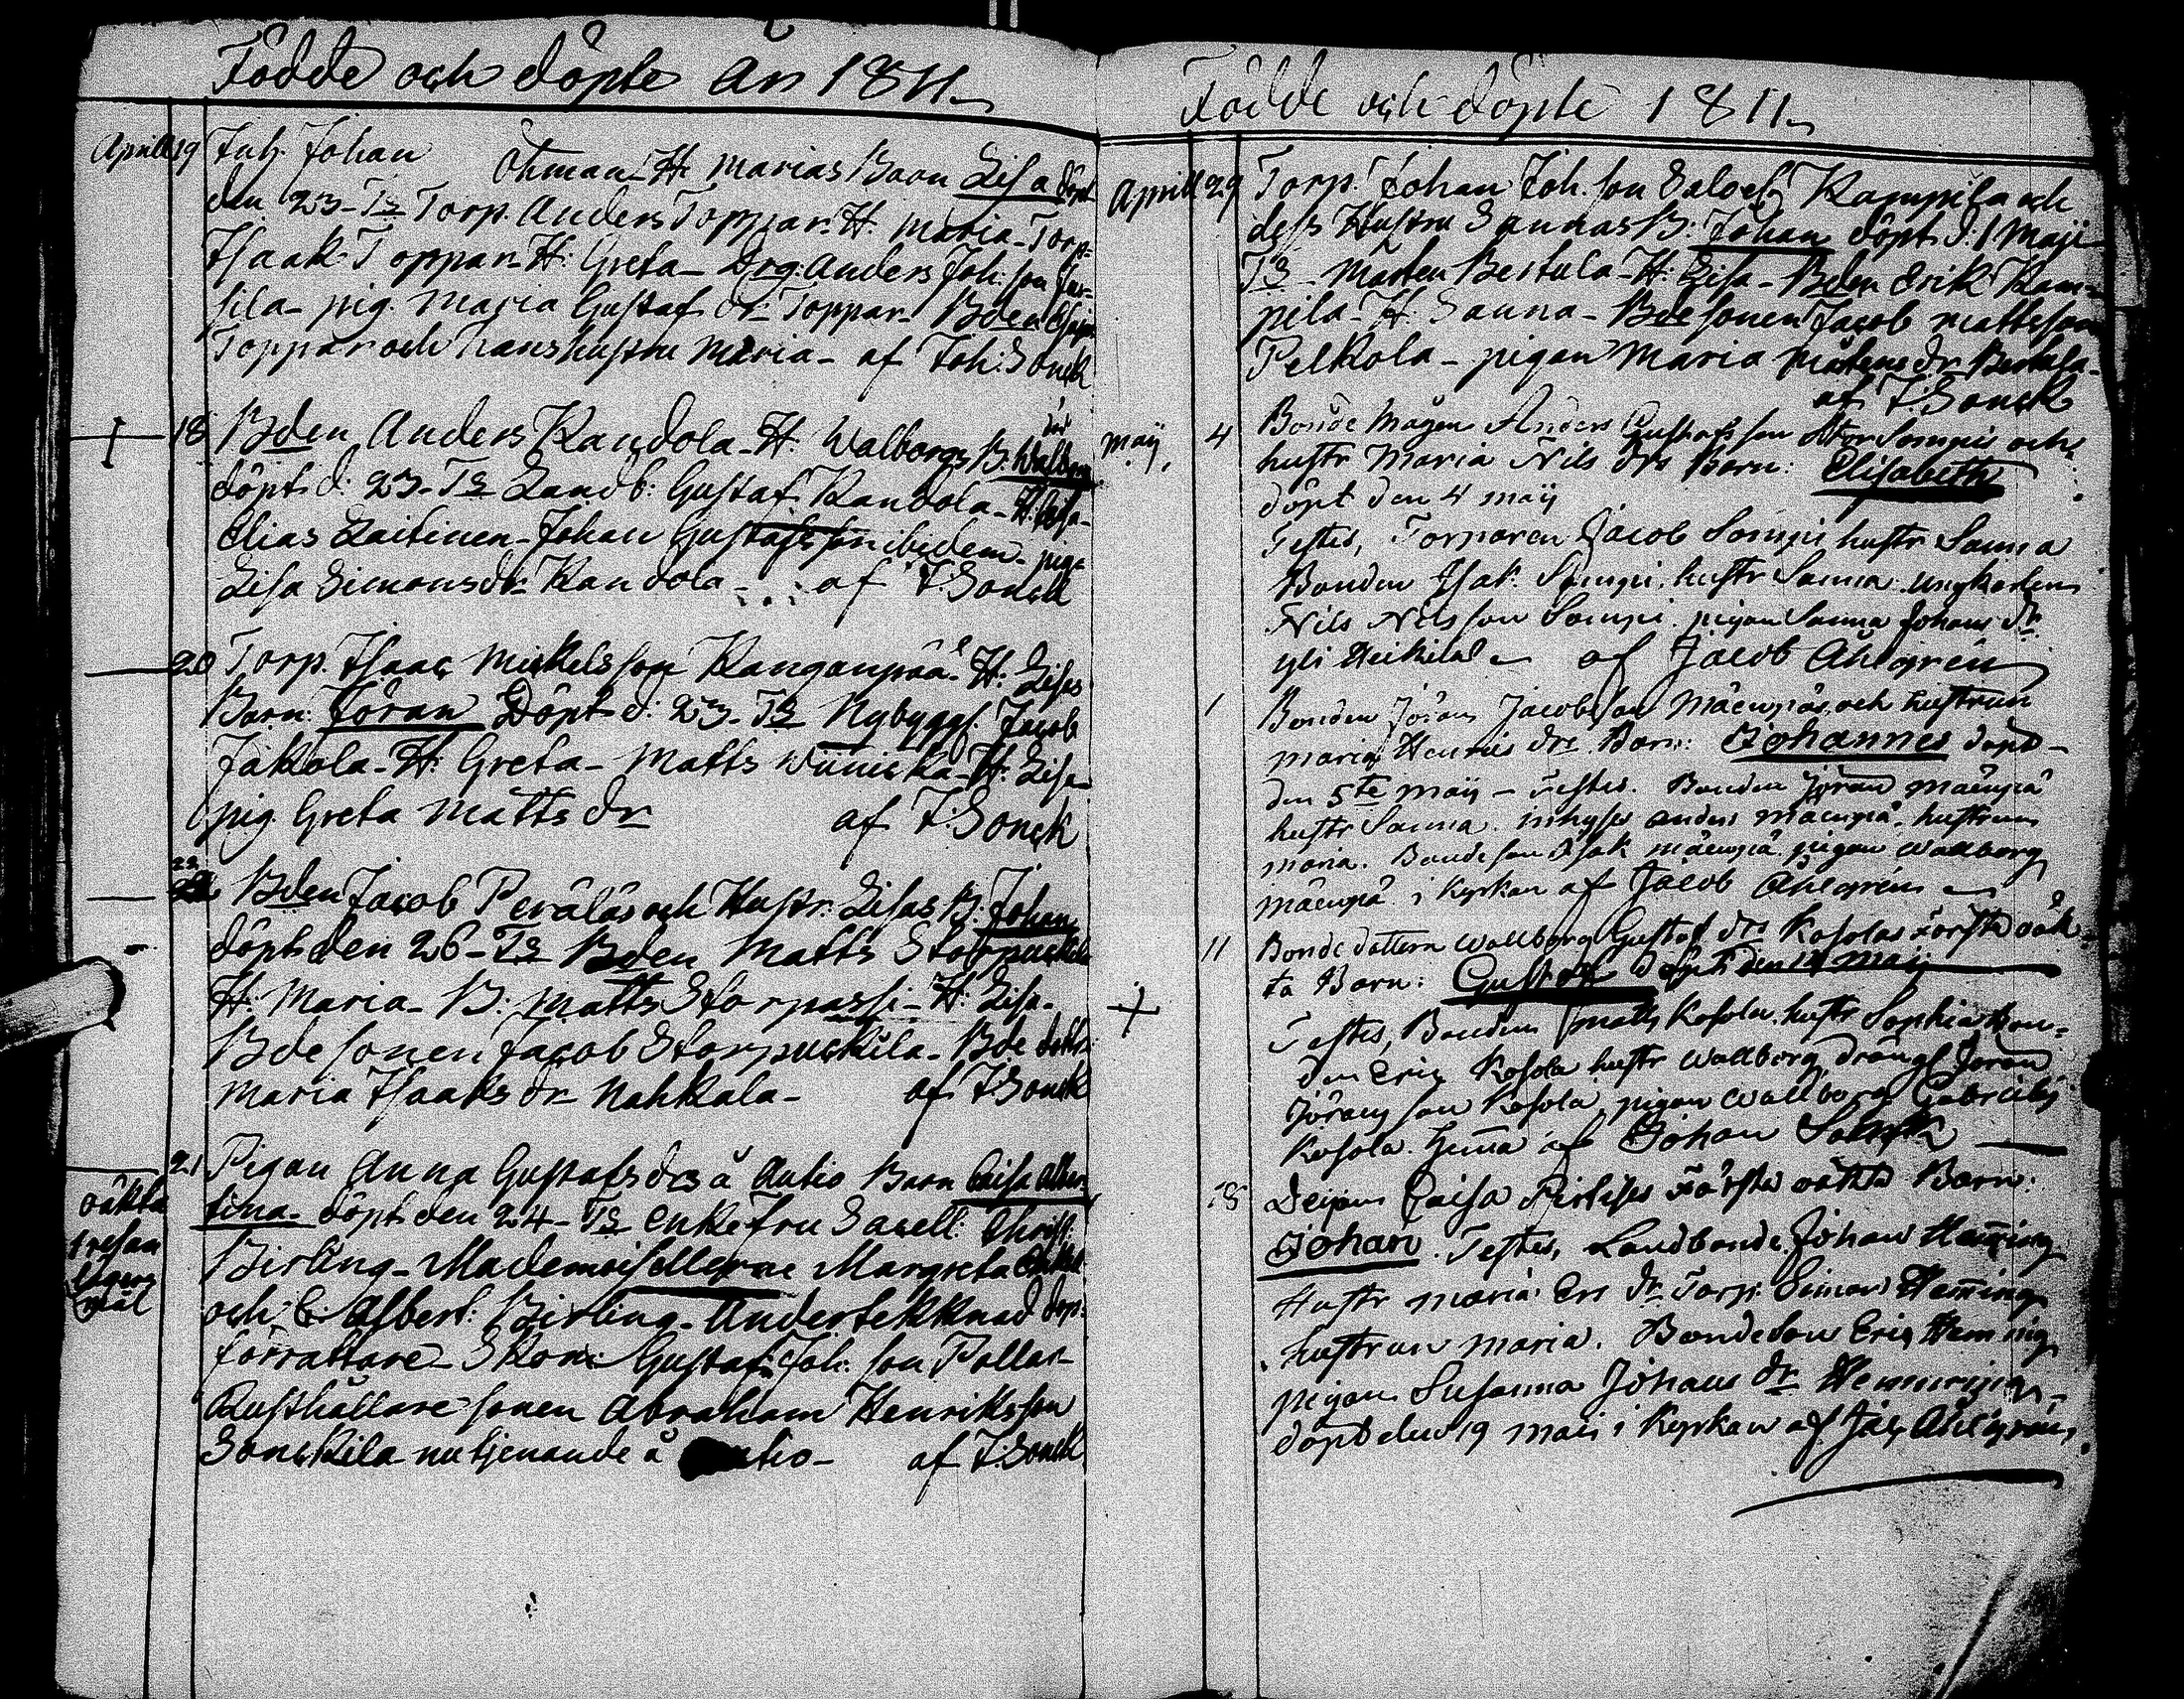 Födde och döpte År 1811.
Aprill 19 Inh. Johan Öhman H. Marias Barn Lisa döpt
den 23 - Ts Torp. Anders Toppar. H. Maria - Torp.
Isaak Toppar - H: Greta - Drg. Anders Joh: son
sila - pig. Maria Gustaf dr Toppar - Bden
Toppar och hans hustru Maria - af Joh: Sonck
18 Bden Anders Kandola - H. Walborgs B. Walborg
döpt d: 23 - Ts Landb: Gustaf Kandola - H. Lisa -
Elias Laitinen - Johan Gustafsson ibidem - piga
Lisa Simonsdr Kandola - af J. Sonck
20 Torp. Isaac Mickelsson Kanganpää - H: Lisas
Barn: Jöran Döpt d: 23 - Ts Nybygg. Jacob
Jakola - H: Greta - Matts Wiinicka - H: Lisa
pig. Greta Matts dr af J. Sonck
22 Bden Jacob Peräläs och Hustr: Lisas B: Johan
döpt den 26 - Ts Bden Matts Storpuckila
H: Maria - B: Matts Storpassi - H: Lisa -
Bdesonen Jacob Storpuckila - Bde dottr.
Maria Isaaks dr Nahkala - af J. Sonck
21 Pigan Anna Gustafs drs å Autio Barn Caisa Alber
tina - döpt den 24 - Ts Enkefru Sacell: Christ:
Birling - Mademoisellerne Margreta
och C: Albert: Birling - Undertekknad dop:
förrättare - Skom: Gustaf Joh: son Pollar -
Rusthållare sonen Abraham Henriksson
Sonckila nu tjenande å Autio - af J. Sonck
oäkta
1 resan
lägers
mål
Födde och döpte 1811.
Aprill 29 Torp. Johan Joh. son Kampila och
dess Hustru Sannas B: Johan döpt d: 1 Maji
Ts - Mårten Bertula - H: Lisa - Bden Erik Kam-
pila - H: Sanna - Bdesonen Jacob Mattsson
Pelkola - pigan Maria Mårtens dr Bertula -
af J. Sonck
Maij, 4 Bonde Mågen Anders Gustafsson Stor Sompis och
hustr Maria Nils drs Barn: Elisabeth
döpt den 4 maij
Testes, Torparen Jacob Sompi hustr Sanna
Bonden Isak Sompi, hustr Sanna. ungkarlen
Nils Nilsson Sompi. pigan Sanna Johans dr
yli Heikilä - af Jacob Ahlgrén
1 Bonden Jöran Jacobsson Mäenpäs och hustrun
Maria Henrics drs Barn: Johannes döpt -
den 5te maij - Testes. Bonden Jöran mäenpä
hustr Sanna. inhyses anders mäenpä. hustrun
maria. Bondeson Isak mäenpä pigan Wallborg
mäenpä i Kyrkan af Jacob Ahlgrén
11 Bonde dottern Wallborg Gustaf drs Kosolas Första oäk-
ta Barn: Gustaf döpt den 12 maij
Testes, Bonden Matts Kosola. hustr Sophia Bon-
den Eric Kosola hustr Wallborg drängl Jöran
Jöransson Kosola, pigan Wallborg Gabriels
Kosola. hema af Johan Sonck
18 Deijan Caisa Pirtises Första oäkta Barn:
Johan. Testes, Landbonde Johan Heming
Hustr maria Ers dr Torp: Simon Heming
hustrun maria. Bondeson Eric Heming
pigan Susanna Johans dr
döpt den 19 maij i Kyrkan af Jac. Ahlgrén